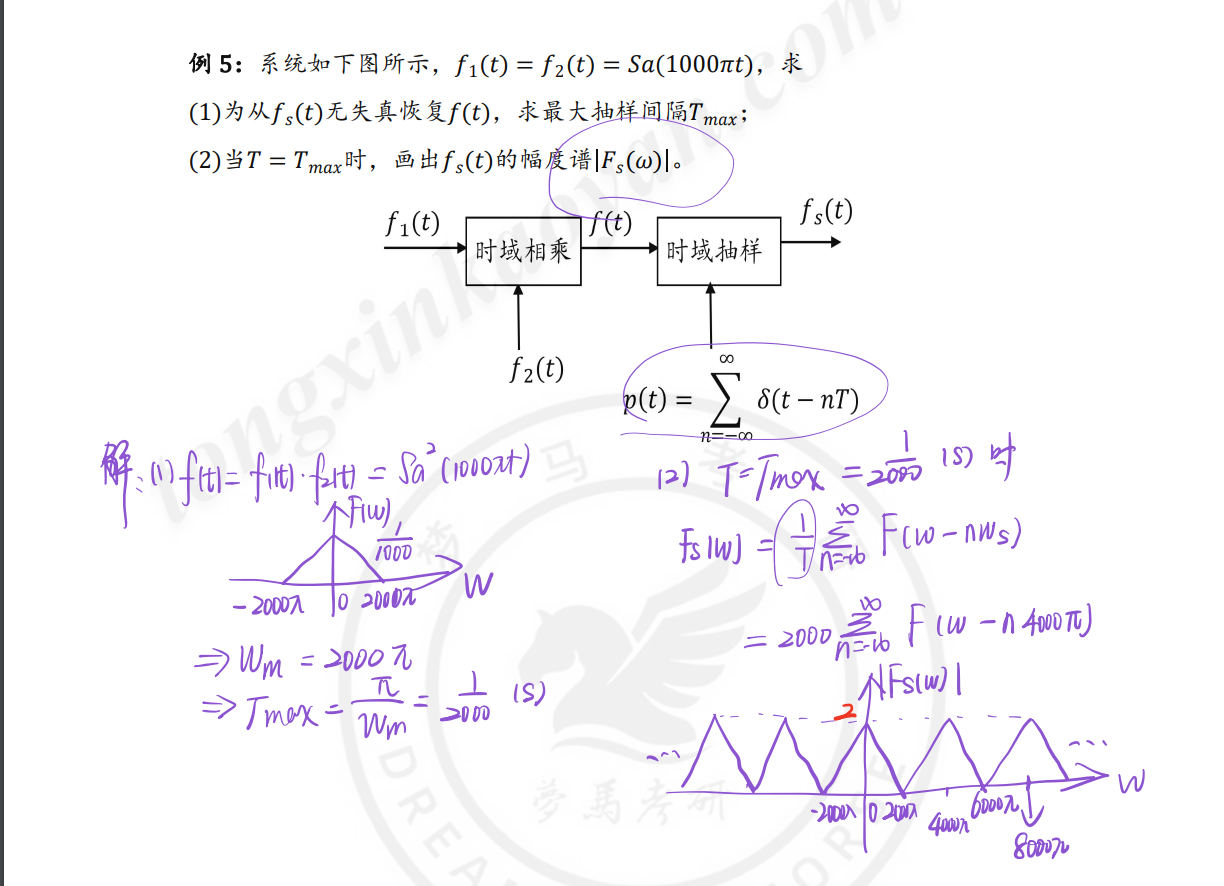 例 5：系统如下图所示，f₁(t) = f₂(t) = Sa(1000πt)，求
(1)为从fₛ(t)无失真恢复f(t)，求最大抽样间隔Tₘₐₓ；
(2)当T = Tₘₐₓ时，画出fₛ(t)的幅度谱|Fₛ(ω)|。
f₁(t) 时域相乘 f(t) 时域抽样 fₛ(t)
f₂(t)
p(t) = ∑_{n=-∞}^{∞} δ(t − nT)
解：(1) f(t) = f₁(t)·f₂(t) = Sa²(1000πt)
F(w)
1/1000
-2000π 0 2000π W
⇒ Wm = 2000π
⇒ Tmax = π/Wm = 1/2000 (S)
(2) T=Tmax = 1/2000 (S) 时
Fs(w) = 1/T ∑_{n=-∞}^{∞} F(w-nws)
= 2000 ∑_{n=-∞}^{∞} F(w-n4000π)
|Fs(w)|
2
... ...
-2000π 0 2000π 4000π 6000π 8000π W
longxinkaoyan.com
夢馬考研